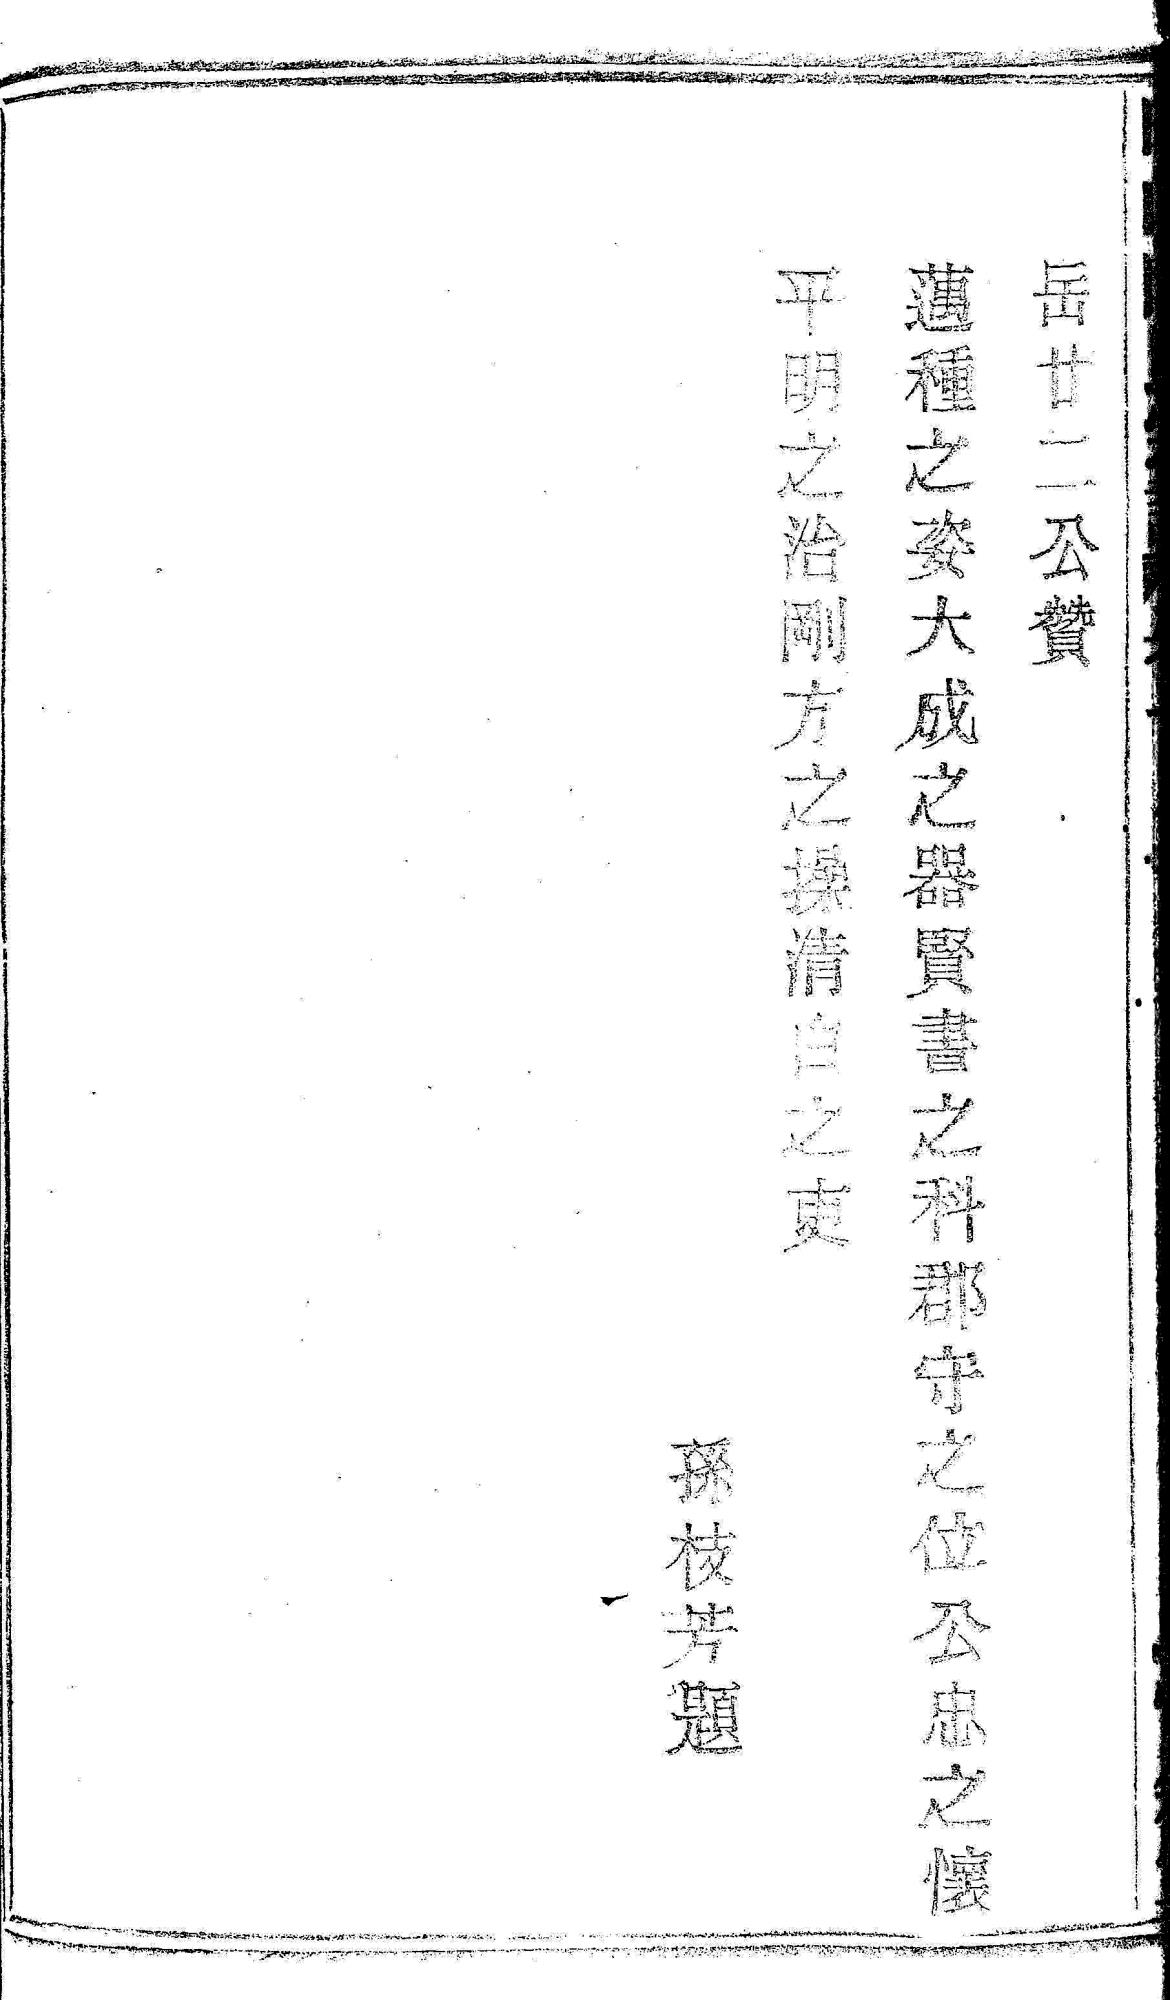 岳廿二公贊
邁種之姿大成之器賢書之科郡守之位公忠之懷
平明之治剛方之操清白之吏
孫枝芳題